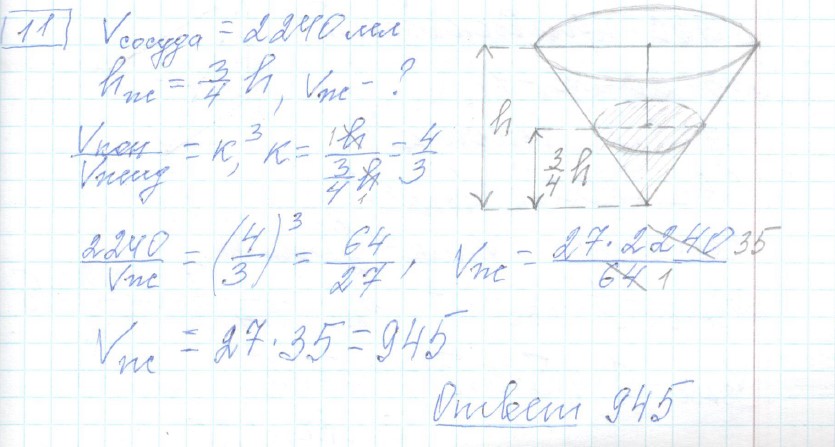 11 Vсосуда = 2240 мл
hж = 3/4 h, Vж - ?
Vкон/Vжид = к³, к = 1h/(3/4 h) = 4/3
h
3/4 h
2240/Vж = (4/3)³ = 64/27, Vж = 27·2240 35/64 1
Vж = 27·35 = 945
Ответ 945